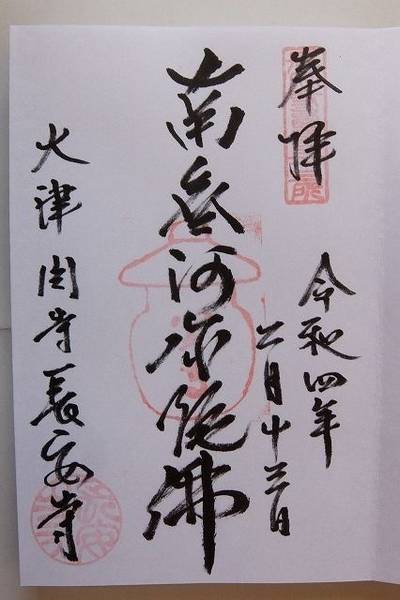 奉拝
令和四年
二月十三日
南無阿弥陀佛
大津関寺長安寺